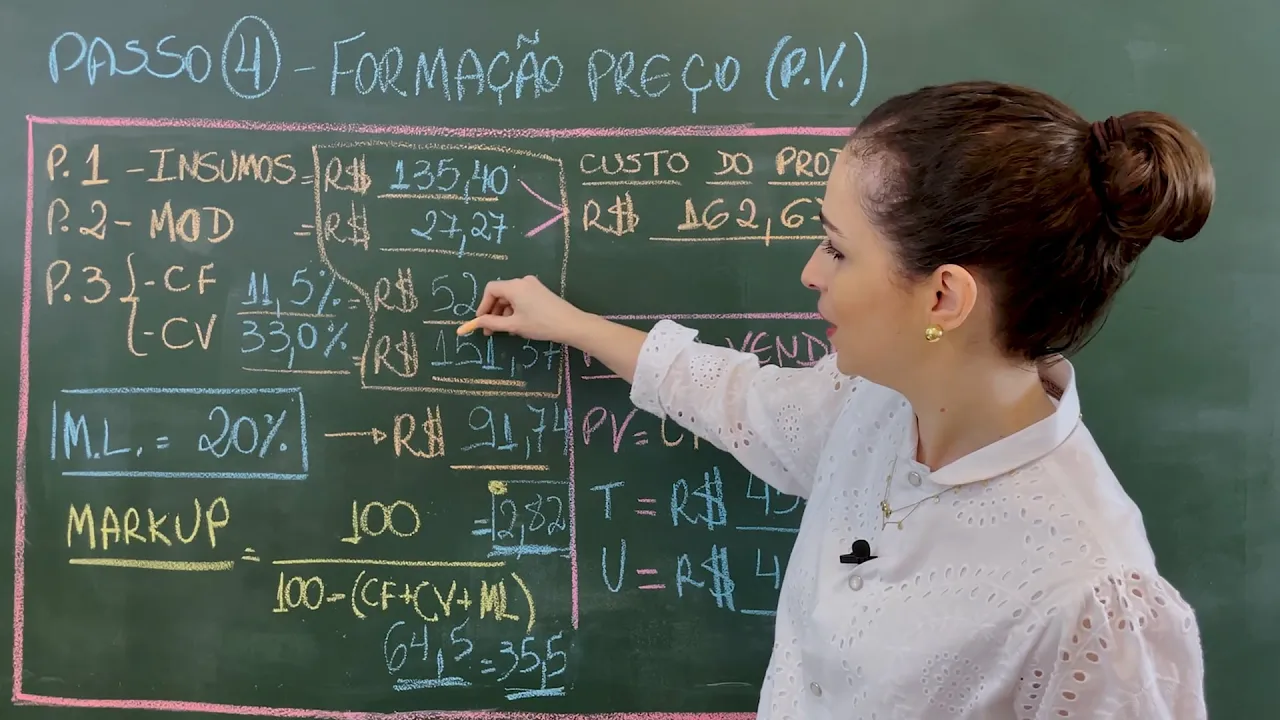 PASSO 4 - FORMAÇÃO PREÇO (P.V.)
P.1 - INSUMOS = R$ 135,40
P.2 - MOD = R$ 27,27
P.3 { - CF 11,5% = R$ 52
- CV 33,0% = R$ 151,37
M.L. = 20% → R$ 91,74
MARKUP = 100 = 2,82
100 - (CF+CV+ML)
64,5 = 35,5
CUSTO DO
R$ 162,6
PV =
T = R$ 45
U = R$ 4